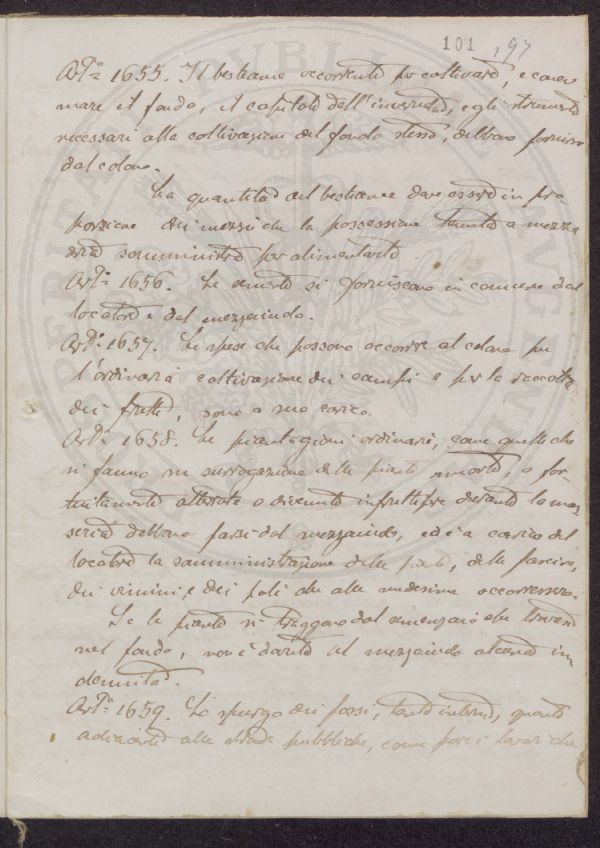 101 , 97
Art.º 1655. Il bestiame occorrente per coltivare, e conci
mare il fondo, il capitale dell'invernata, e gli strumenti
necessari alla coltivazione del fondo stesso, debbono fornirsi
dal colono.
La quantità del bestiame deve essere in pro
porzione dei mezzi che la possessione tenuta a mezza
dria somministra per alimentarlo.
Art.º 1656. Le sementi si forniscono in comune dal
locatore e dal mezzaiuolo.
Art.º 1657. Le spese che possono occorrere al colono per
l'ordinaria coltivazione dei campi e per la raccolta
dei frutti, sono a suo carico.
Art.º 1658. Le piantagioni ordinarie, come quelle che
si fanno in surrogazione delle piante morte, o for
tuitamente atterrate o divenute infruttifere durante la mas
seria debbono farsi dal mezzaiuolo, ed è a carico del
locatore la somministrazione delle piante, delle fascine,
dei vimini e dei pali che alle medesime occorressero.
Se le piante si traggono dal semenzaio che trovasi
nel fondo, non è dovuta al mezzaiuolo alcuna in
dennità.
Art.º 1659. Lo spurgo dei fossi, tanto interni, quanto
adiacenti alle strade pubbliche, come pure i lavori che